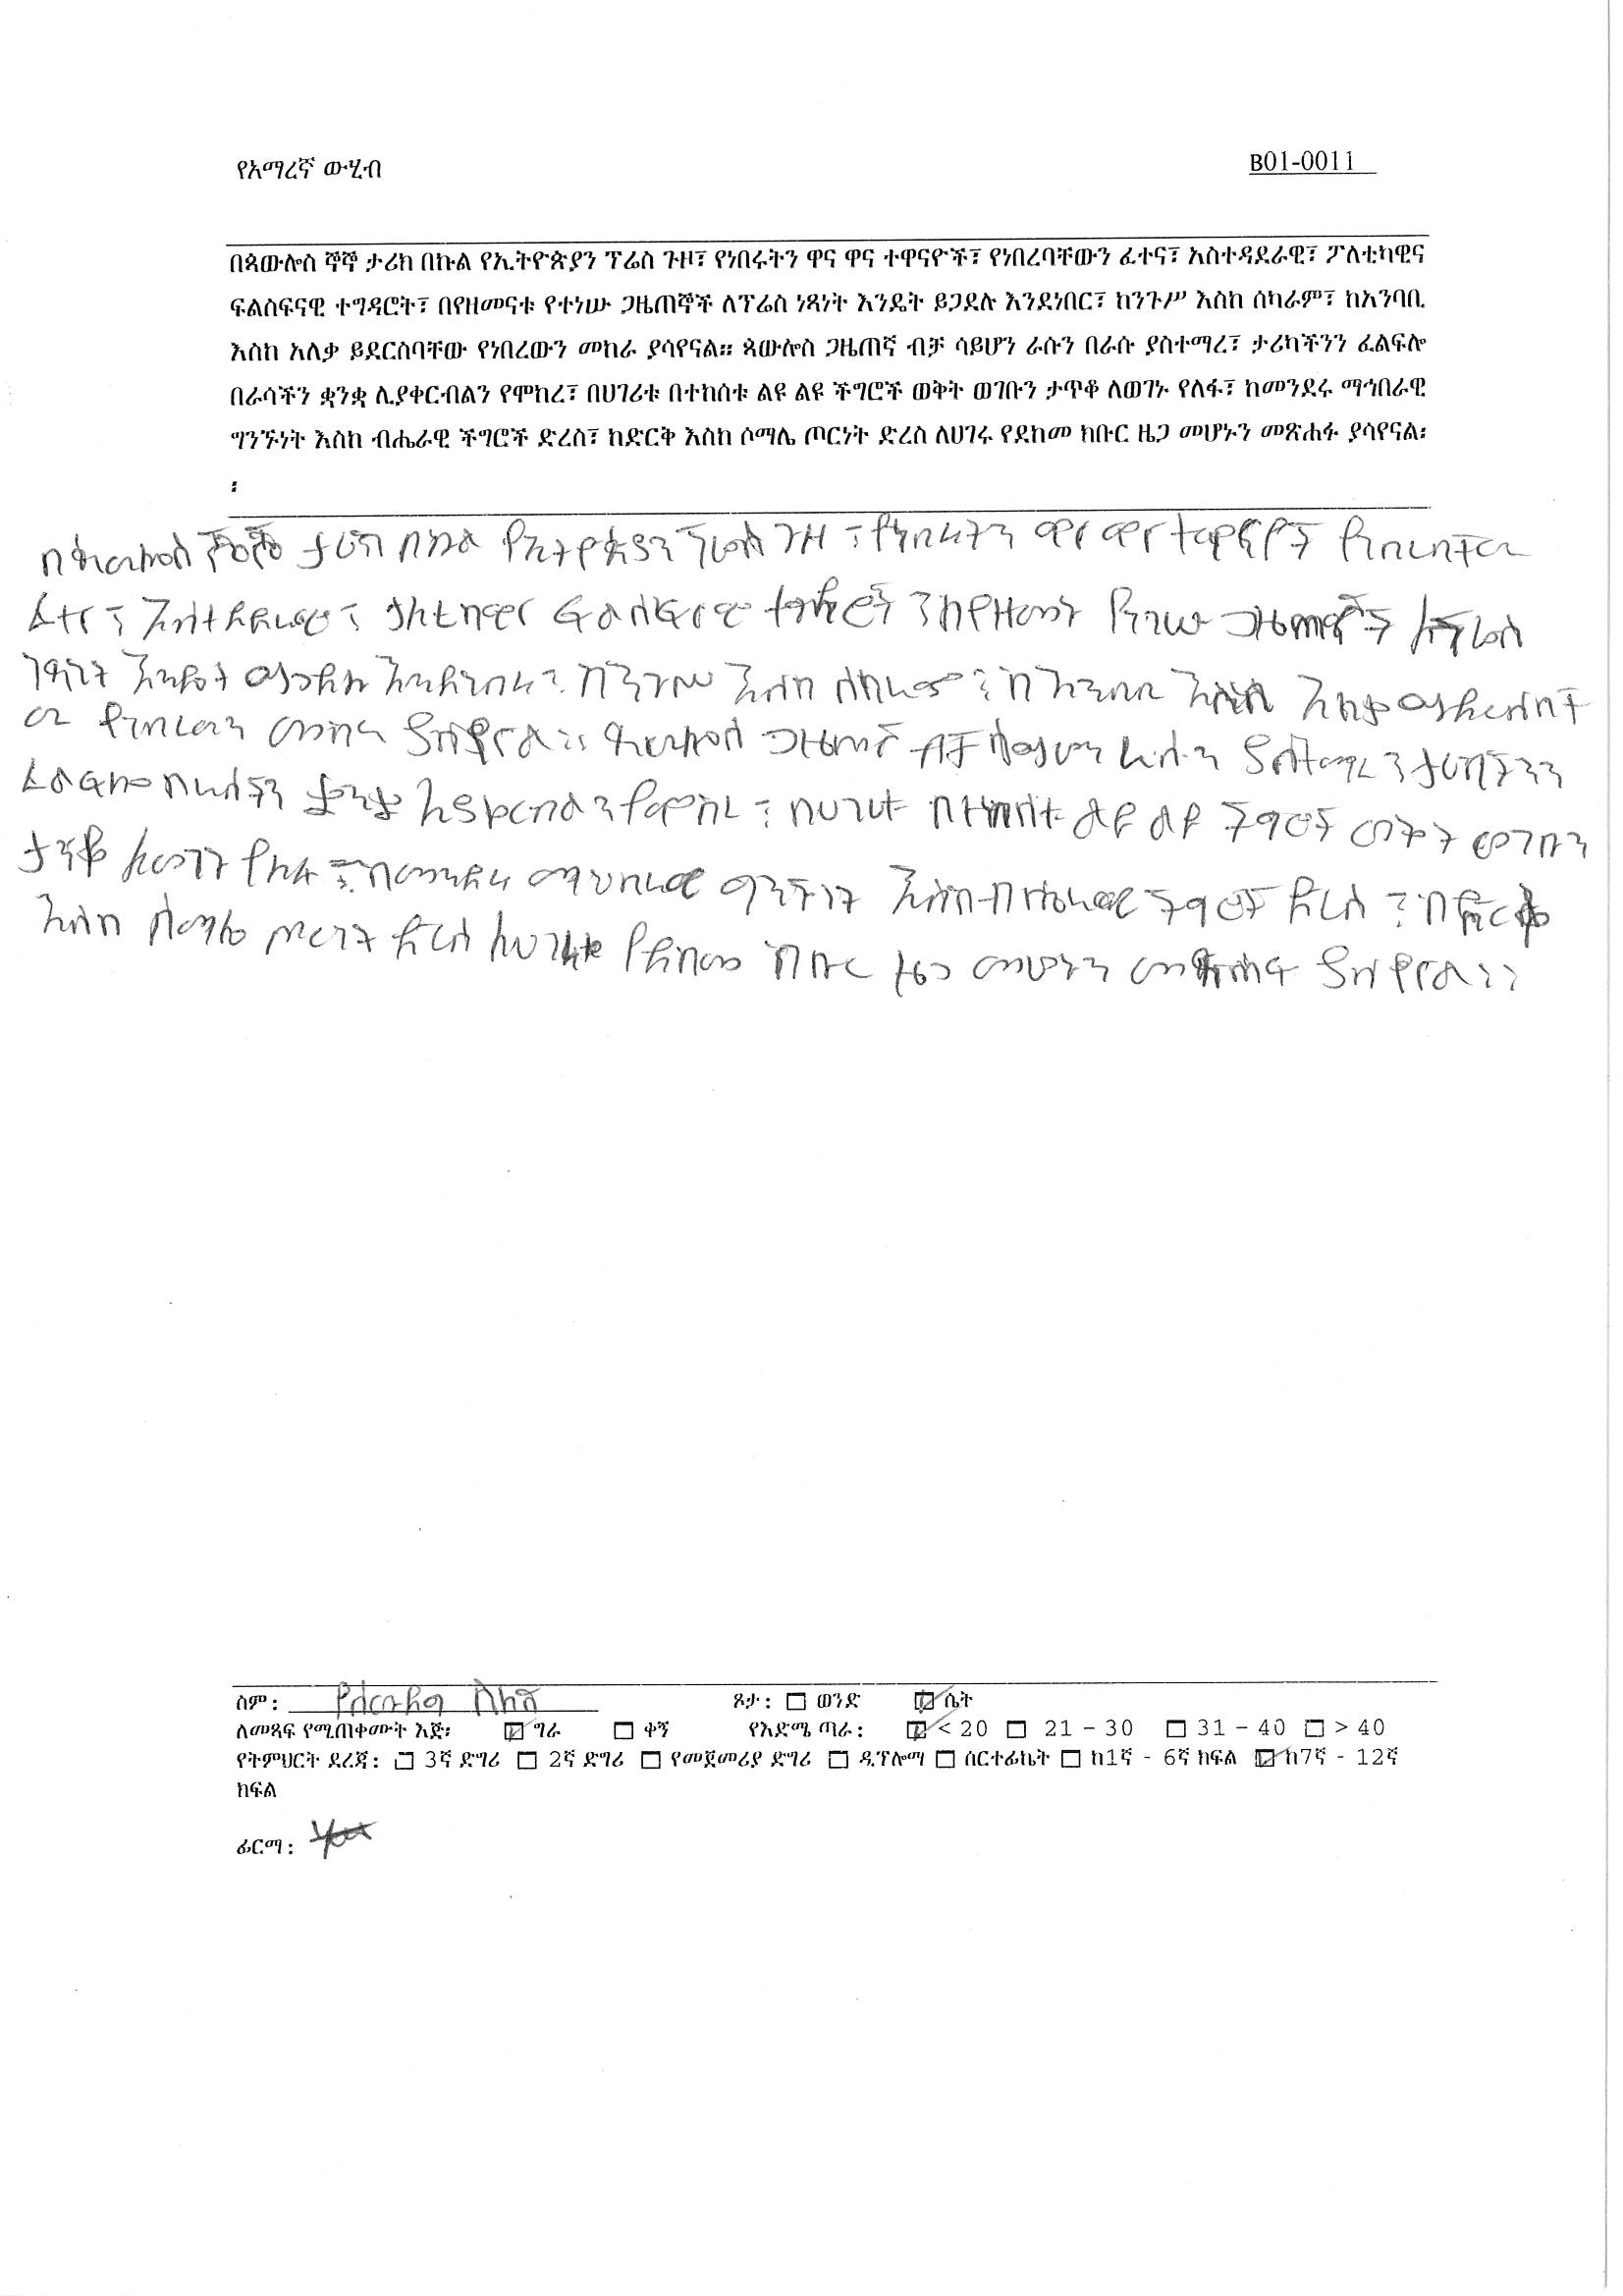 የአማረኛ ውሂብ B01-0011
በጳውሎስ ኞኞ ታሪክ በኩል የኢትዮጵያን ፕሬስ ጉዞ፣ የነበሩትን ዋና ዋና ተዋናዮች፣ የነበረባቸውን ፈተና፣ አስተዳደራዊ፣ ፖለቲካዊና
ፍልስፍናዊ ተግዳሮት፣ በየዘመናቱ የተነሡ ጋዜጠኞች ለፕሬስ ነጻነት እንዴት ይጋደሉ እንደነበር፣ ከንጉሥ እስከ ሰካራም፣ ከአንባቢ
እስከ አለቃ ይደርስባቸው የነበረውን መከራ ያሳየናል። ጳውሎስ ጋዜጠኛ ብቻ ሳይሆን ራሱን በራሱ ያስተማረ፣ ታሪካችንን ፈልፍሎ
በራሳችን ቋንቋ ሊያቀርብልን የሞከረ፣ በሀገሪቱ በተከሰቱ ልዩ ልዩ ችግሮች ወቅት ወገቡን ታጥቆ ለወገኑ የለፋ፣ ከመንደሩ ማኅበራዊ
ግንኙነት እስከ ብሔራዊ ችግሮች ድረስ፣ ከድርቅ እስከ ሶማሌ ጦርነት ድረስ ለሀገሩ የደከመ ክቡር ዜጋ መሆኑን መጽሐፉ ያሳየናል፡
፡
በጳውሎስ ኞኞ ታሪክ በኩል የኢትዮጵያን ፕሬስ ጉዞ ፣ የነበሩትን ዋና ዋና ተዋናዮች የነበረባቸው
ፈተና ፣ አስተዳደራዊ ፣ ፖለቲካዊና ፍልስፍናዊ ተግዳሮት ፣ በየዘመናት የተነሡ ጋዜጠኞች ለፕሬስ
ነጻነት እንዴት ይጋደሉ እንደነበሩ ፣ ከንጉሥ እስከ ሰካራም ፣ ከ አንባቢ እስከ አለቃ ይደርስባቸ
ው የነበረውን መከራ ያሳየናል ። ጳውሎስ ጋዜጠኛ ብቻ ሳይሆን ራሱን ያስተማረ ፣ ታሪካችንን
ፈልፍሎ በራሳችን ቋንቋ ሊያቀርብልን የሞከረ ፣ በሀገሪቱ በተከሰቱ ልዩ ልዩ ችግሮች ወቅት ወገቡን
ታጥቆ ለወገኑ የለፋ ፣ ከመንደሩ ማህበራዊ ግንኙነት እስከ ብሔራዊ ችግሮች ድረስ ፣ ከድርቅ
እስከ ሶማሌ ጦርነት ድረስ ለሀገሩ የደከመ ክቡር ዜጋ መሆኑን መጽሐፉ ያሳየናል ።
ስም: ጾታ: ወንድ ሴት
ለመጻፍ የሚጠቀሙት እጅ፡ ግራ ቀኝ የእድሜ ጣራ: < 20 21 – 30 31 – 40 > 40
የትምህርት ደረጃ: 3ኛ ድግሪ 2ኛ ድግሪ የመጀመሪያ ድግሪ ዲፕሎማ ሰርተፊኬት ከ1ኛ - 6ኛ ክፍል ከ7ኛ - 12ኛ
ክፍል
ፊርማ: